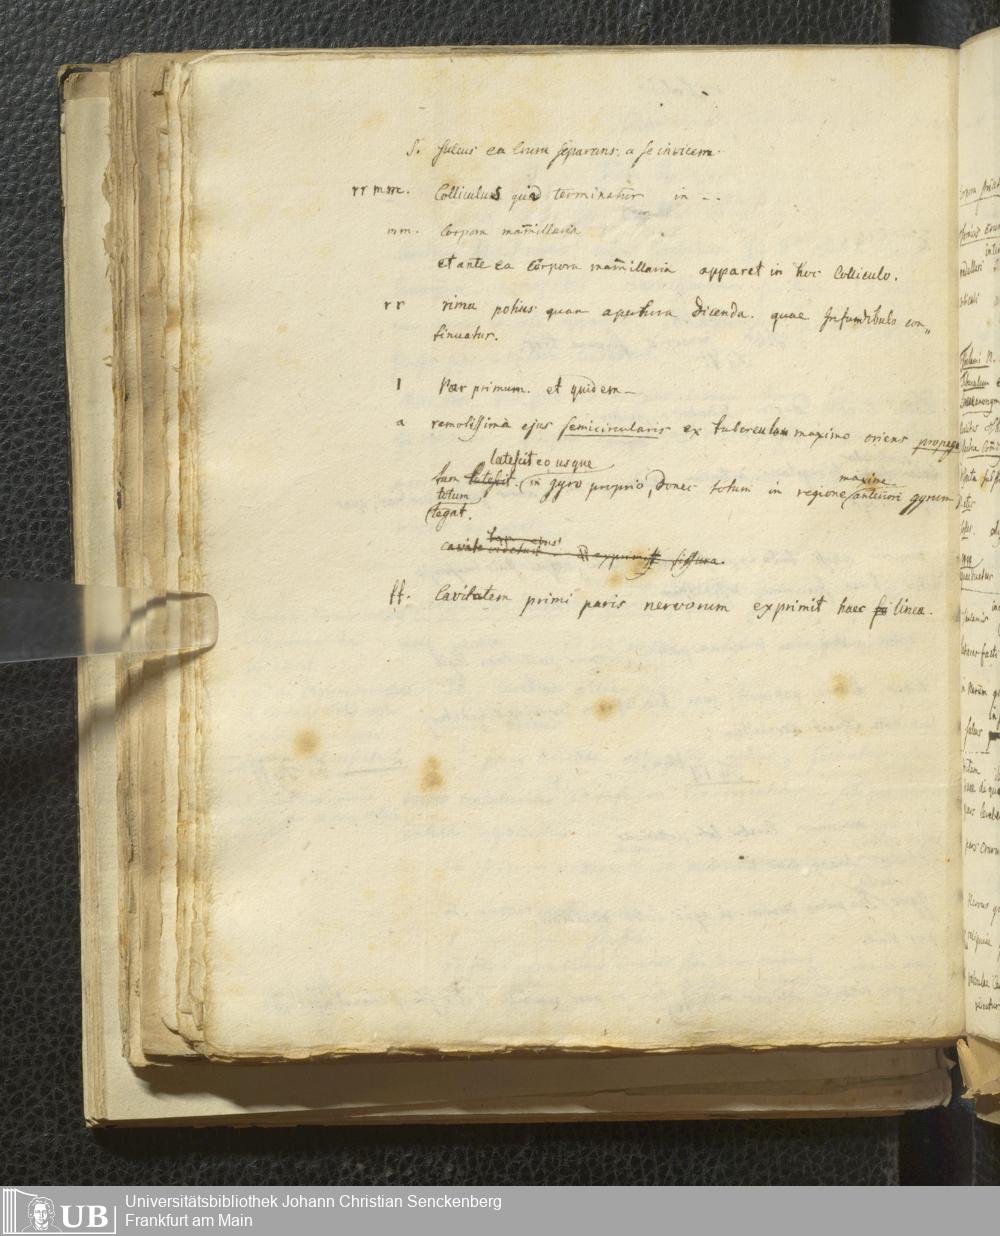 S. Sulcus ea crura separans. a se invicem.
rr mm. Colliculus quid terminatur in --
mm. Corpora mam̄illaria
et ante ea corpora mam̄illaria apparet in hoc Colliculo.
rr rima potius quam apertura dicenda. quae Infundibulo con„
tinuatur.
1 Par primum. et quidem –
a remotissima ejus semicircularis ex tuberculum maximo oriens propaga
latescit eo usque
tum latescit. in gyro proprio, donec totum in regione anteriori gyrum
maxime
totum
tegat.
exprimit fissura.
ff. Cavitatem primi paris nervorum exprimit haec linea.
Universitätsbibliothek Johann Christian Senckenberg
Frankfurt am Main
UB